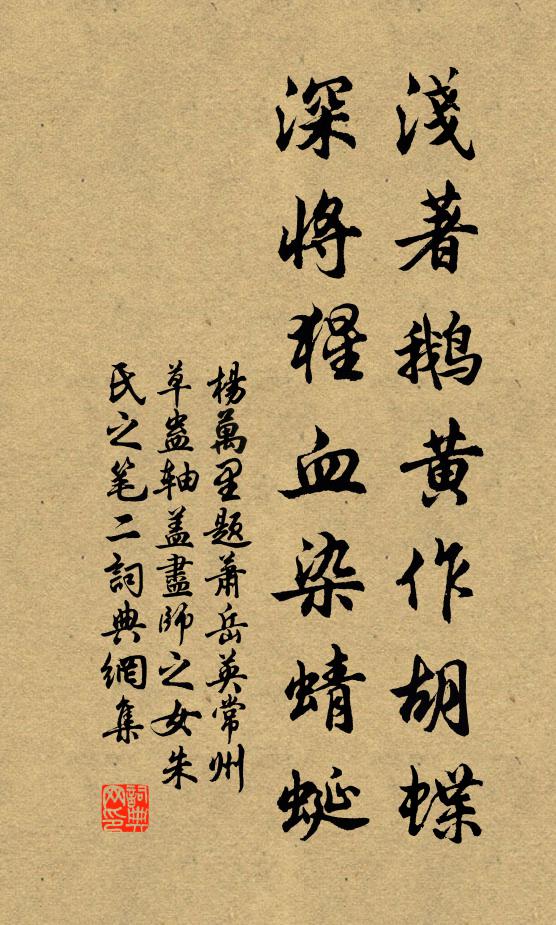 淺著鵝黃作胡蝶
深將猩血染蜻蜓
楊萬里題蕭岳英常州
草蟲軸蓋畫師之女朱
氏之笔二詞典網集
詞典網印